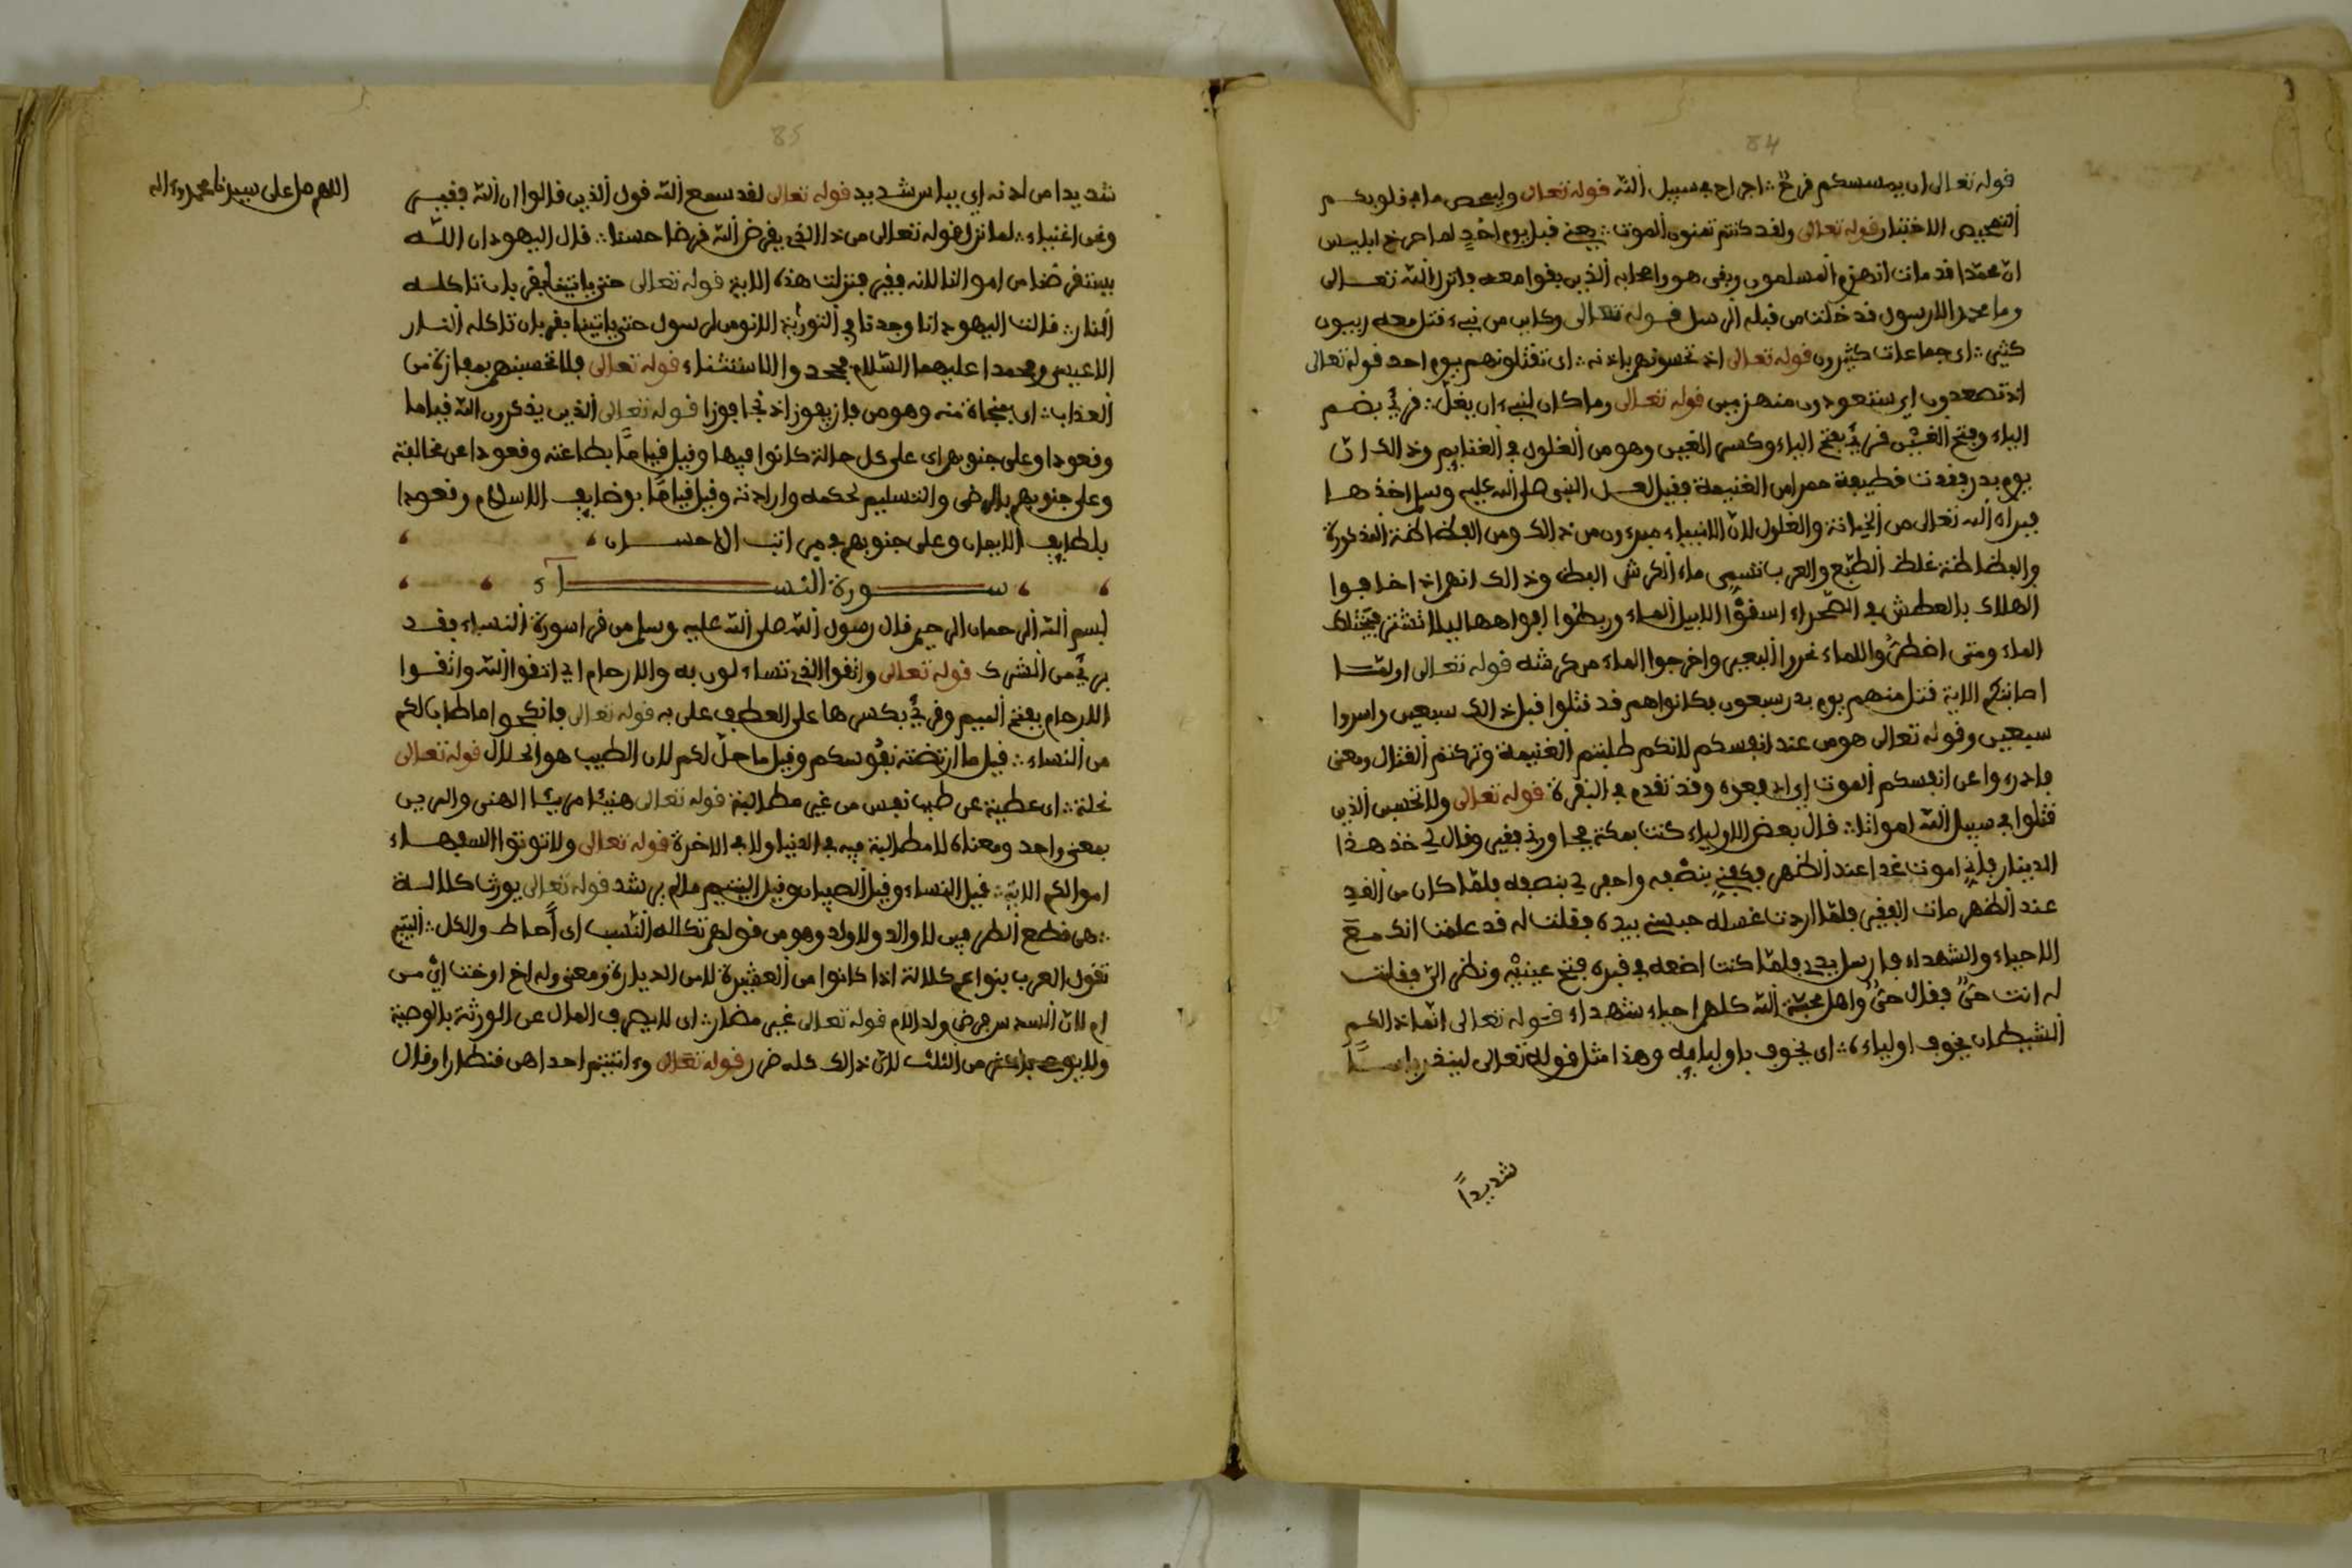 84
قوله تعالى ان يمسسكم قرح ؞ اجراح في سبيل الله قوله تعالى وليمحص ما في قلوبكم
التمحيص الاختبار قوله تعالى ولقد كنتم تمنون الموت ؞ يعني قبل يوم احد لما صرخ ابليس
ان محمدا قد مات انهزم المسلمون وبقى هو واصحابه الذين بقوا معه فانزل الله تعالى
وما محمد الا رسول قد خلت من قبله الرسل قوله تعالى وكاين من نبيء قتل معه ربيون
كثير ؞ اي جماعات كثيرون قوله تعالى اذ تحسونهم باذنه ؞ اي تقتلونهم يوم احد قوله تعالى
اذ تصعدون اي ستعودون منهزمين قوله تعالى وما كان لنبيء ان يغل ؞ قرئ بضم
الياء وفتح الغين قرئ بفتح الياء وكسر الغين وهو من الغلول في الغنايم وذالك ان
يوم بدر فقدت قطيفة حمرا من الغنيمة فقيل لعل النبي صلى الله عليه وسلم اخذها
فبراه الله تعالى من الخيانة والغلول لان الانبياء مبرءون من ذالك ومن الفظاظة المذكورة
والفظاظة غلظ الطبع والعرب تسمى ماء الكرش الفظ وذالك انهم اذا خافوا
الهلاك بالعطش في الصحراء اسقوا الابيل الماء وربطوا افواهها ليلا تشتر فتختلك
الماء ومتى اضطروا للماء نحروا البعير واخرجوا الماء من كرشه قوله تعالى اولما
اصابتكم الاية قتل منهم يوم بدر سبعون بكانواهم قد قتلوا قبل ذالك سبعين واسروا
سبعين وقوله تعالى هو من عند انفسكم لانكم طلبتم الغنيمة وتركتم القتال ومعنى
فادرءوا عن انفسكم الموت اي ادفعوه وقد تقدم في البقرة قوله تعالى ولا تحسبن الذين
قتلوا في سبيل الله امواتا ؞ قال بعض الاولياء كنت بمكة فجاورني فقير وقال لي خذ هذا
الدينار فاني اموت غدا عند الظهر فكفني بنصفه واحفر لي بنصفه فلما كان من الغد
عند الظهر مات الفقير فلما اردت غسله حبسني بيده فقلت له قد علمنا انك مع
الاحياء والشهداء فارسل يدي فلما كنت اضعه في قبره فتح عينيه ونظر الي فقلت
له انت حي فقال حي واهل محبة الله كلهم احياء شهداء قوله تعالى انما ذالكم
الشيطان يخوف اولياءه ؞ اي يخوف باوليايه وهذا مثل قوله تعالى لينذر باسا
شديدا
85
شديدا من لدنه اي بباس شديد قوله تعالى لقد سمع الله قول الذين قالوا ان الله فقير
ونحن اغنياء ؞ لما نزل قوله تعالى من ذا الذي يقرض الله قرضا حسنا ؞ قال اليهود ان الله
يستقرضنا من اموالنا لانه فقير فنزلت هذه الاية قوله تعالى حتى ياتينا بقربان تاكله
النار ؞ قالت اليهود انا وجدنا في التورية الا نومن لرسول حتى ياتينا بقربان تاكله النار
الا عيسى ومحمدا عليهما السلام فجحدوا الاستثناء قوله تعالى فلا تحسبنهم بمفازة من
العذاب ؞ اي بمنجاة منه وهو من فاز يفوز اذ نجا فوزا قوله تعالى الذين يذكرون الله قياما
وقعودا وعلى جنوبهم اي على كل حالة كانوا فيها وقيل قياما بطاعته وقعودا عن مخالفته
وعلى جنوبهم بالرضى والتسليم لحكمه وارادته وقيل قياما بوضايف الاسلام وقعودا
بلطايف الايمان وعلى جنوبهم في مراتب الاحسان
سورة النساء
بسم الله الرحمان الرحيم قال رسول الله صلى الله عليه وسلم من قرا سورة النساء فقد
برئ من الشرك قوله تعالى واتقوا الذي تساءلون به والارحام اي اتقوا الله واتقوا
الارحام بفتح الميم وقرئ بكسرها على العطف على به قوله تعالى فانكحوا ما طاب لكم
من النساء ؞ قيل ما ارتضته نفوسكم وقيل ما حل لكم لان الطيب هو الحلال قوله تعالى
نحلة ؞ اي عطية عن طيب نفس من غير مطالبة قوله تعالى هنيئا مريئا الهني والمرين
بمعنى واحد ومعناه لا مطالبة فيه في الدنيا ولا في الاخرة قوله تعالى ولا توتوا السفهاء
اموالكم الاية ؞ قيل النساء وقيل الصبيان وقيل اليتيم مالم يرشد قوله تعالى يورث كلالة
؞ هي قطع الطرفين لا والد ولا ولد وهو من قولهم تكلله النسب اي احاط والكل ؞ اليتيم
تقول العرب بنوا عم كلالة اذا كانوا من العشيرة لا من الديارة ومعنى وله اخ او خت اي من
ام لان السدس فرض ولد الام قوله تعالى غير مضار ؞ اي لا يصرف المال عن الورثة بالوصية
ولا يوصى باكثر من الثلث لان ذالك كله ضرر قوله تعالى وءاتيتم احداهن قنطارا وقال
اللهم صل على سيدنا محمد وءاله